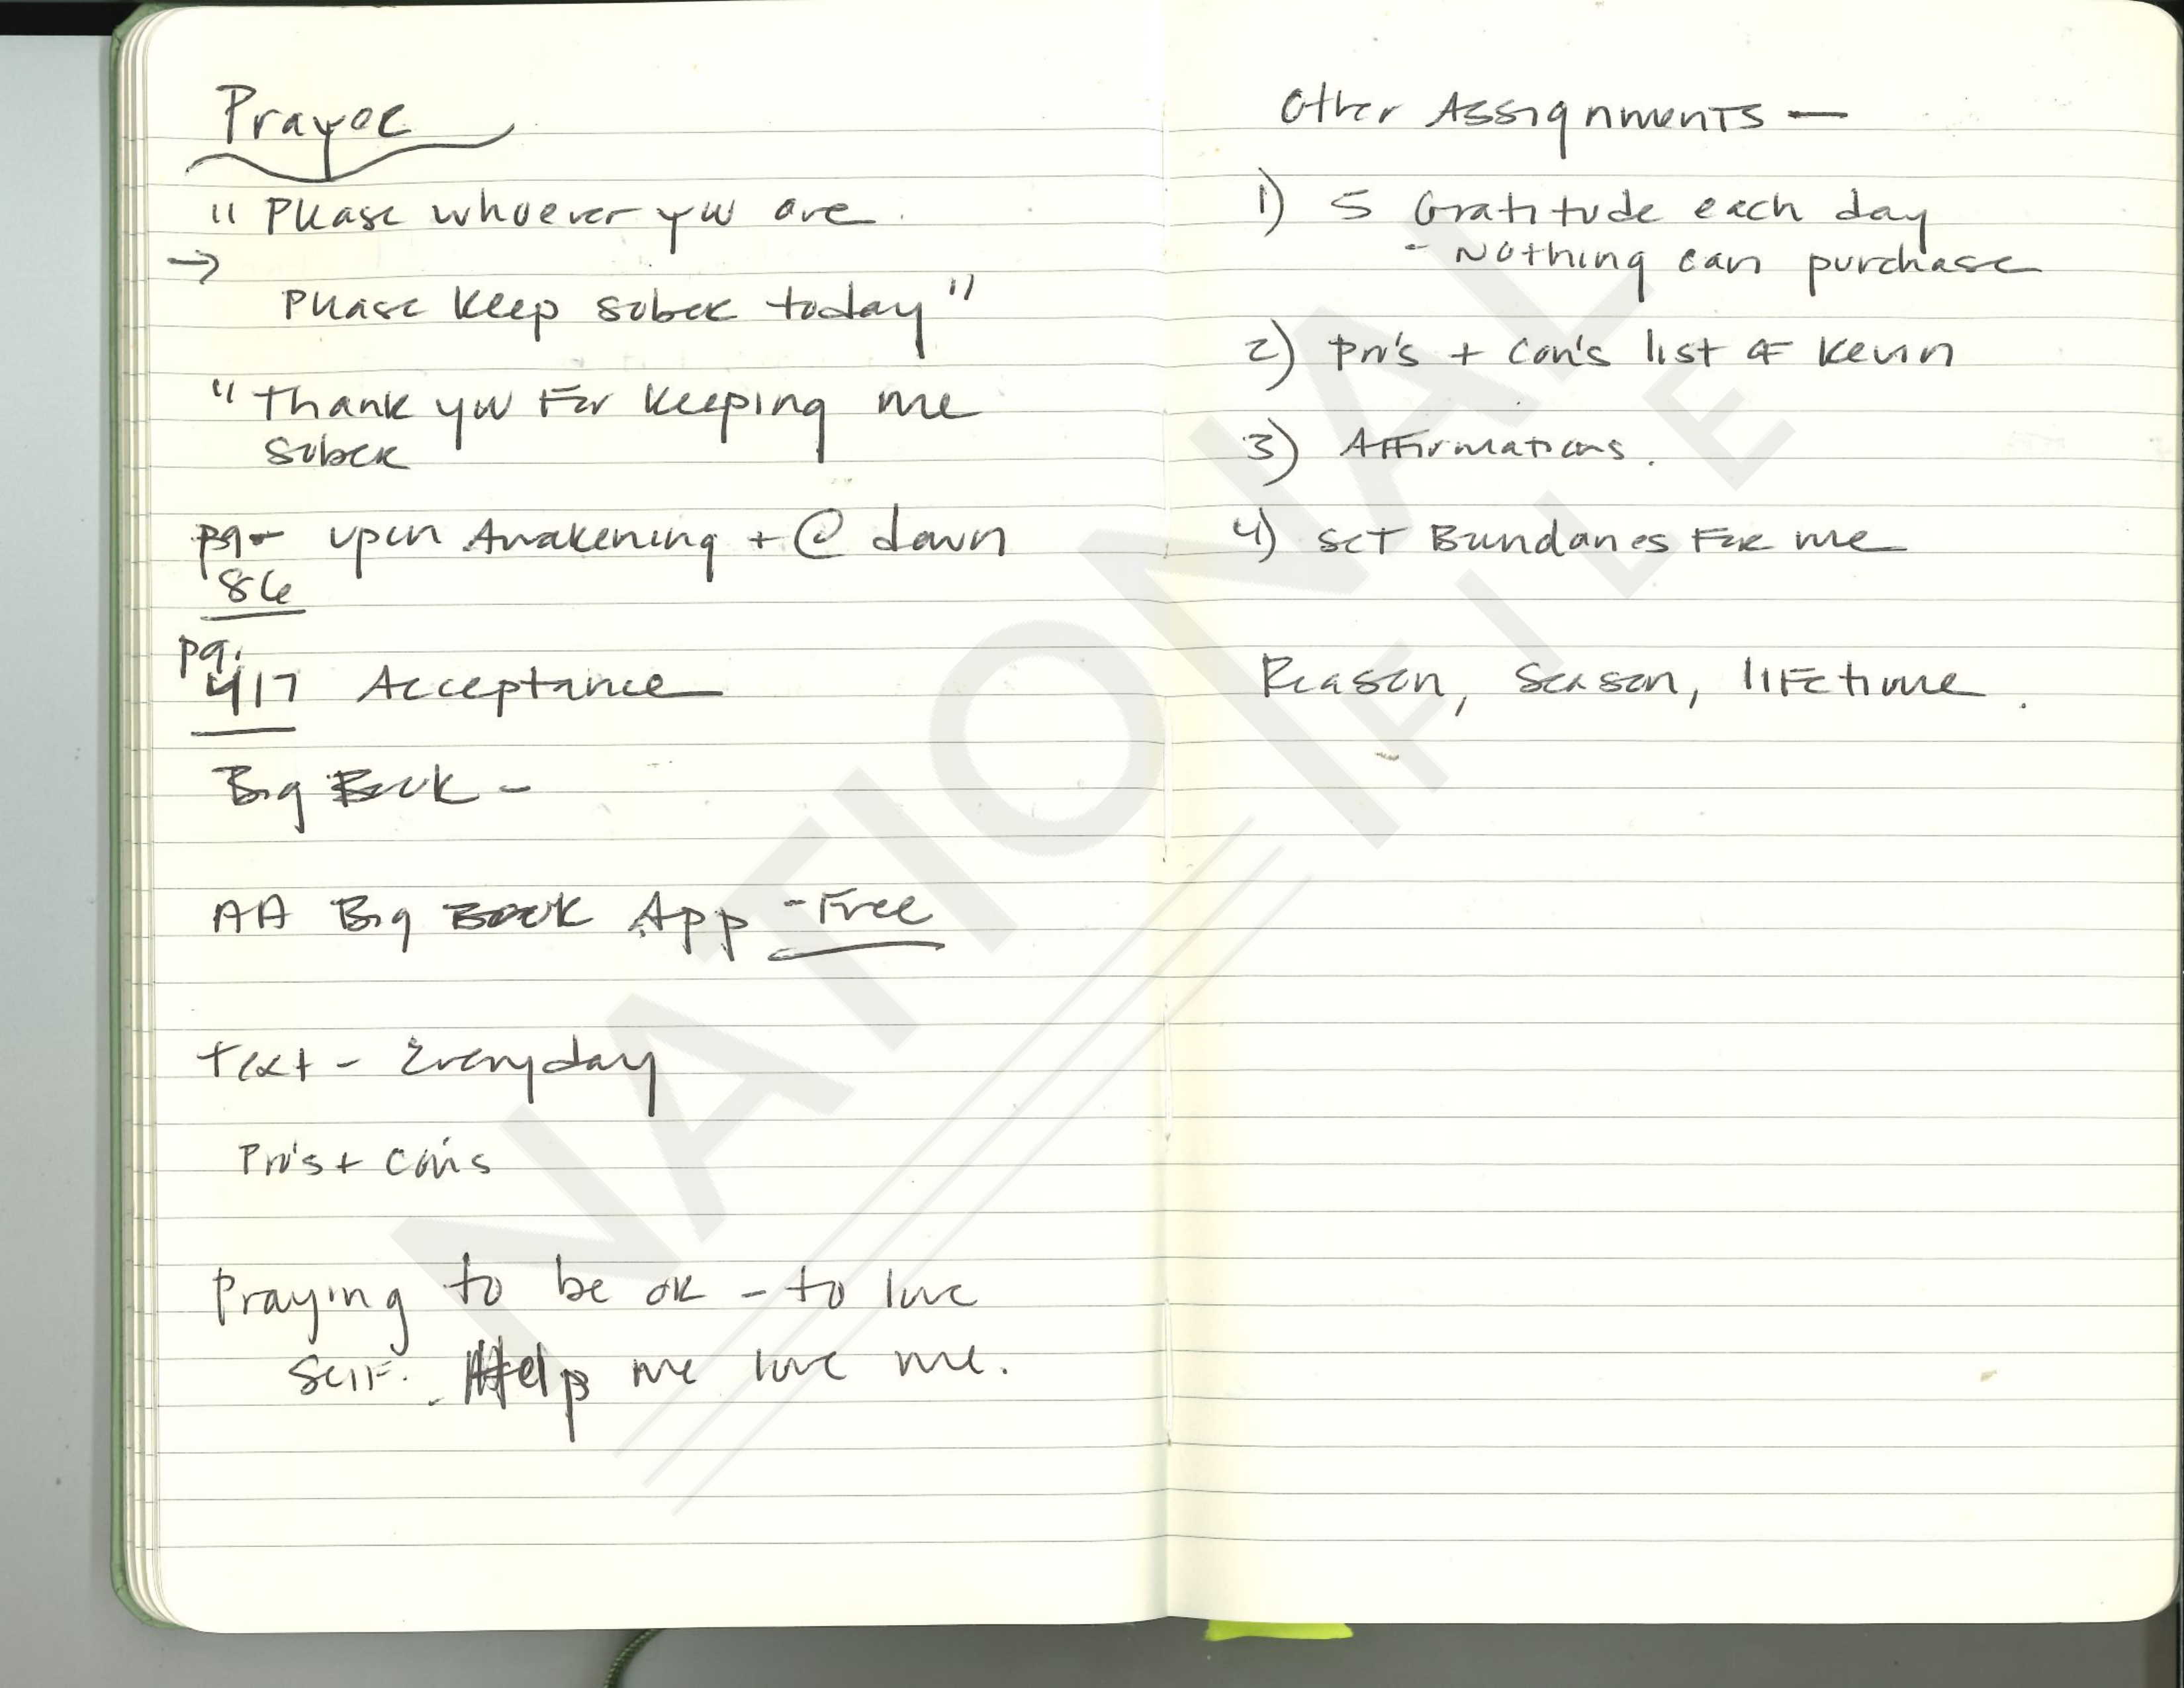 Prayer
"Please whoever you are
→
Please keep sober today"
"Thank you for keeping me
sober
pg - upon Awakening + @ dawn
86
pg.
417 Acceptance
Big Book -
AA Big Book App - Free
Text - Everyday
Pro's + Con's
Praying to be ok - to love
self. Help me love me.
Other Assignments —
1) 5 Gratitude each day
- Nothing can purchase
2) Pro's + Con's list of Kevin
3) Affirmations.
4) Set Bundaries for me
Reason, Season, lifetime.
NATIONAL
FILE